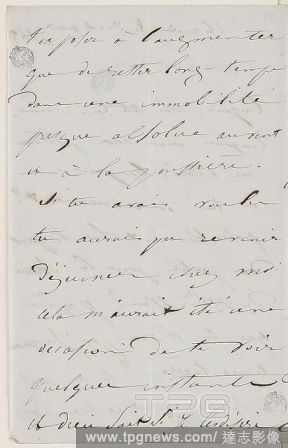 t'exposer à l'augmenter
que de rester long-temps
dans une immobilité
presque absolue au vent
et à la poussière.
Si tu avais voulu
tu aurais pu revenir
déjeuner chez moi
cela m'aurait été une
occasion de te voir
quelques instants
et dieu sait si j
TPG
www.tpgnews.com/達志影像